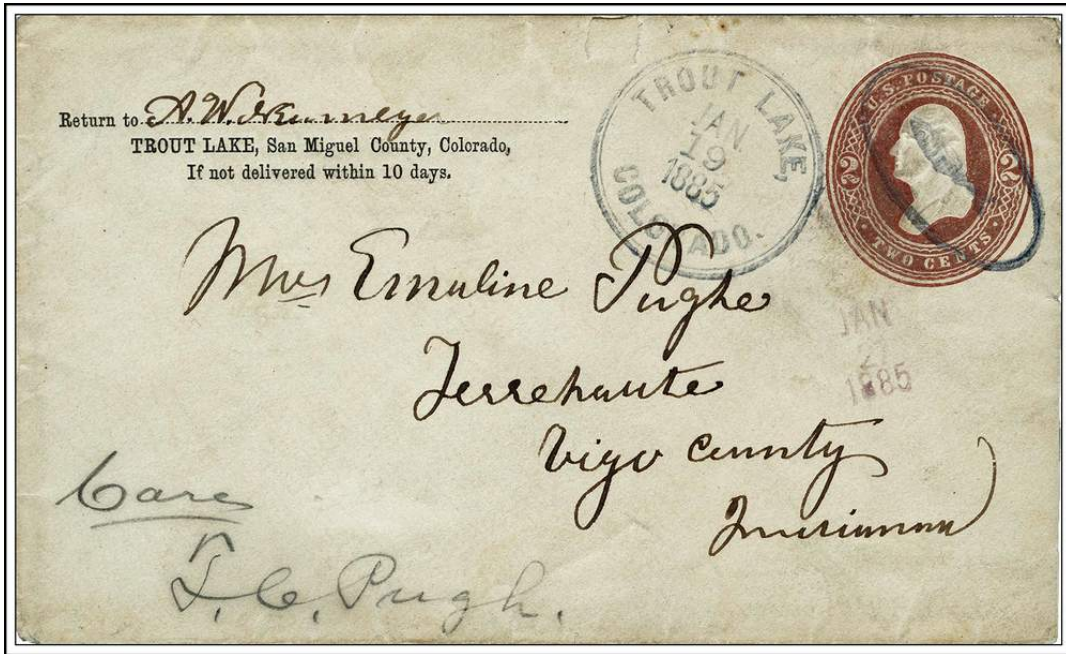 Return to A. W. Neumeyer
TROUT LAKE, San Miguel County, Colorado,
If not delivered within 10 days.
TROUT LAKE,
JAN
19
1885
COLORADO.
U.S. POSTAGE
2 2
TWO CENTS
Mrs Emaline Pughe
Terrehaute
Vigo County
Indianna
JAN
1885
Care
T. C. Pugh.